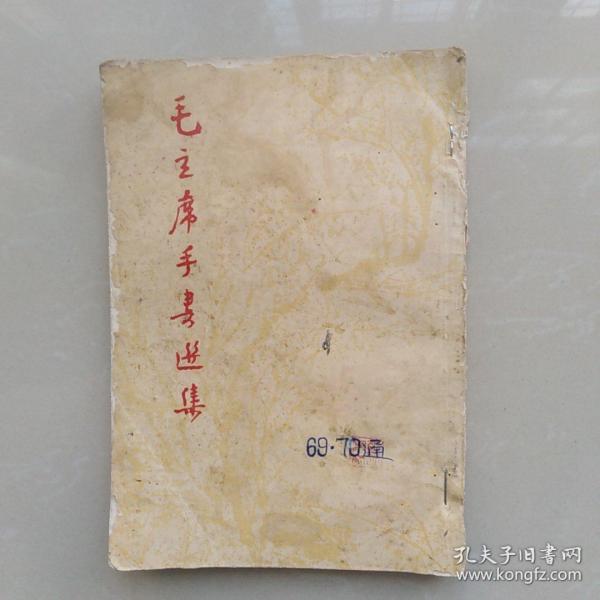 毛主席手書選集
69·70通
孔夫子旧書网
www.kongfz.com